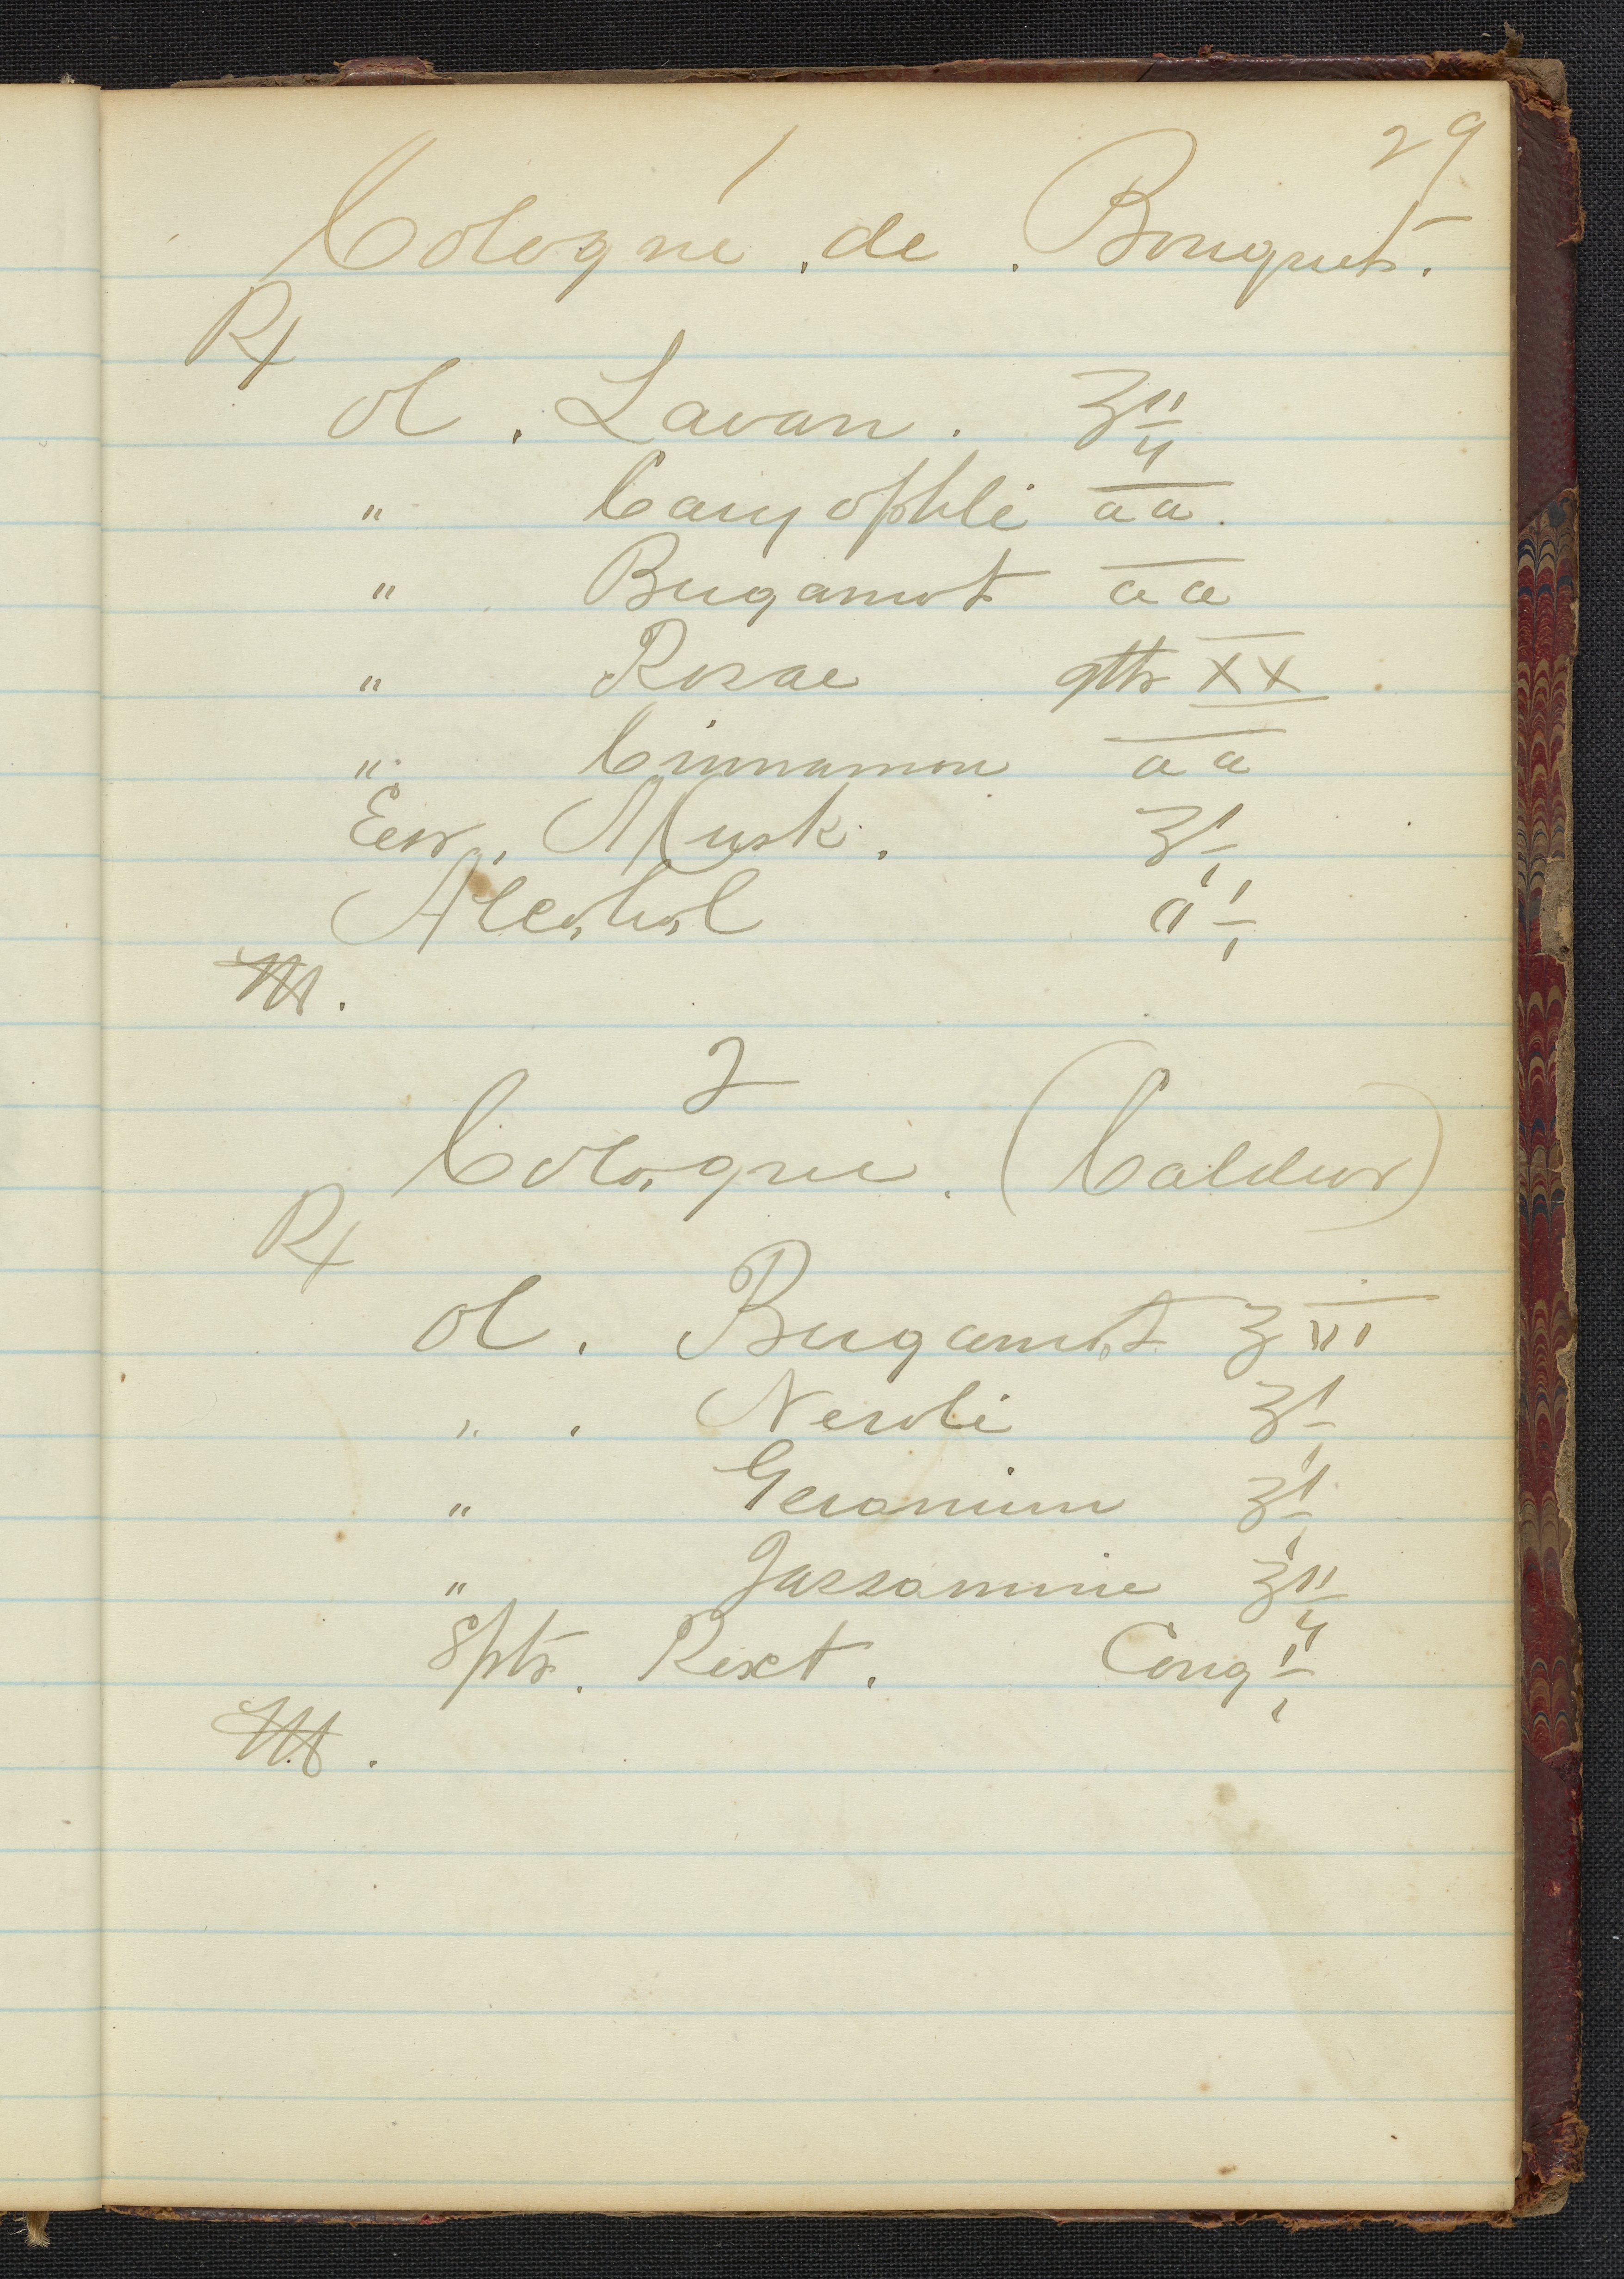 29
1
Cologne . de . Bouquet .
Rx
Ol . Lavan . ʒ ii
" Caryophli aa .
" Bergamot aa
" Rosae gtts XX
" Cinnamon aa
Ess . Musk . ʒ i
Alcohol O i
M .
2
Cologne . (Calder)
Rx
Ol . Bergamot ʒ iii
" . Neroli ʒ i
" Geranium ʒ i
" Jassamine ʒ ii
Spts . Rect . Cong i
M .